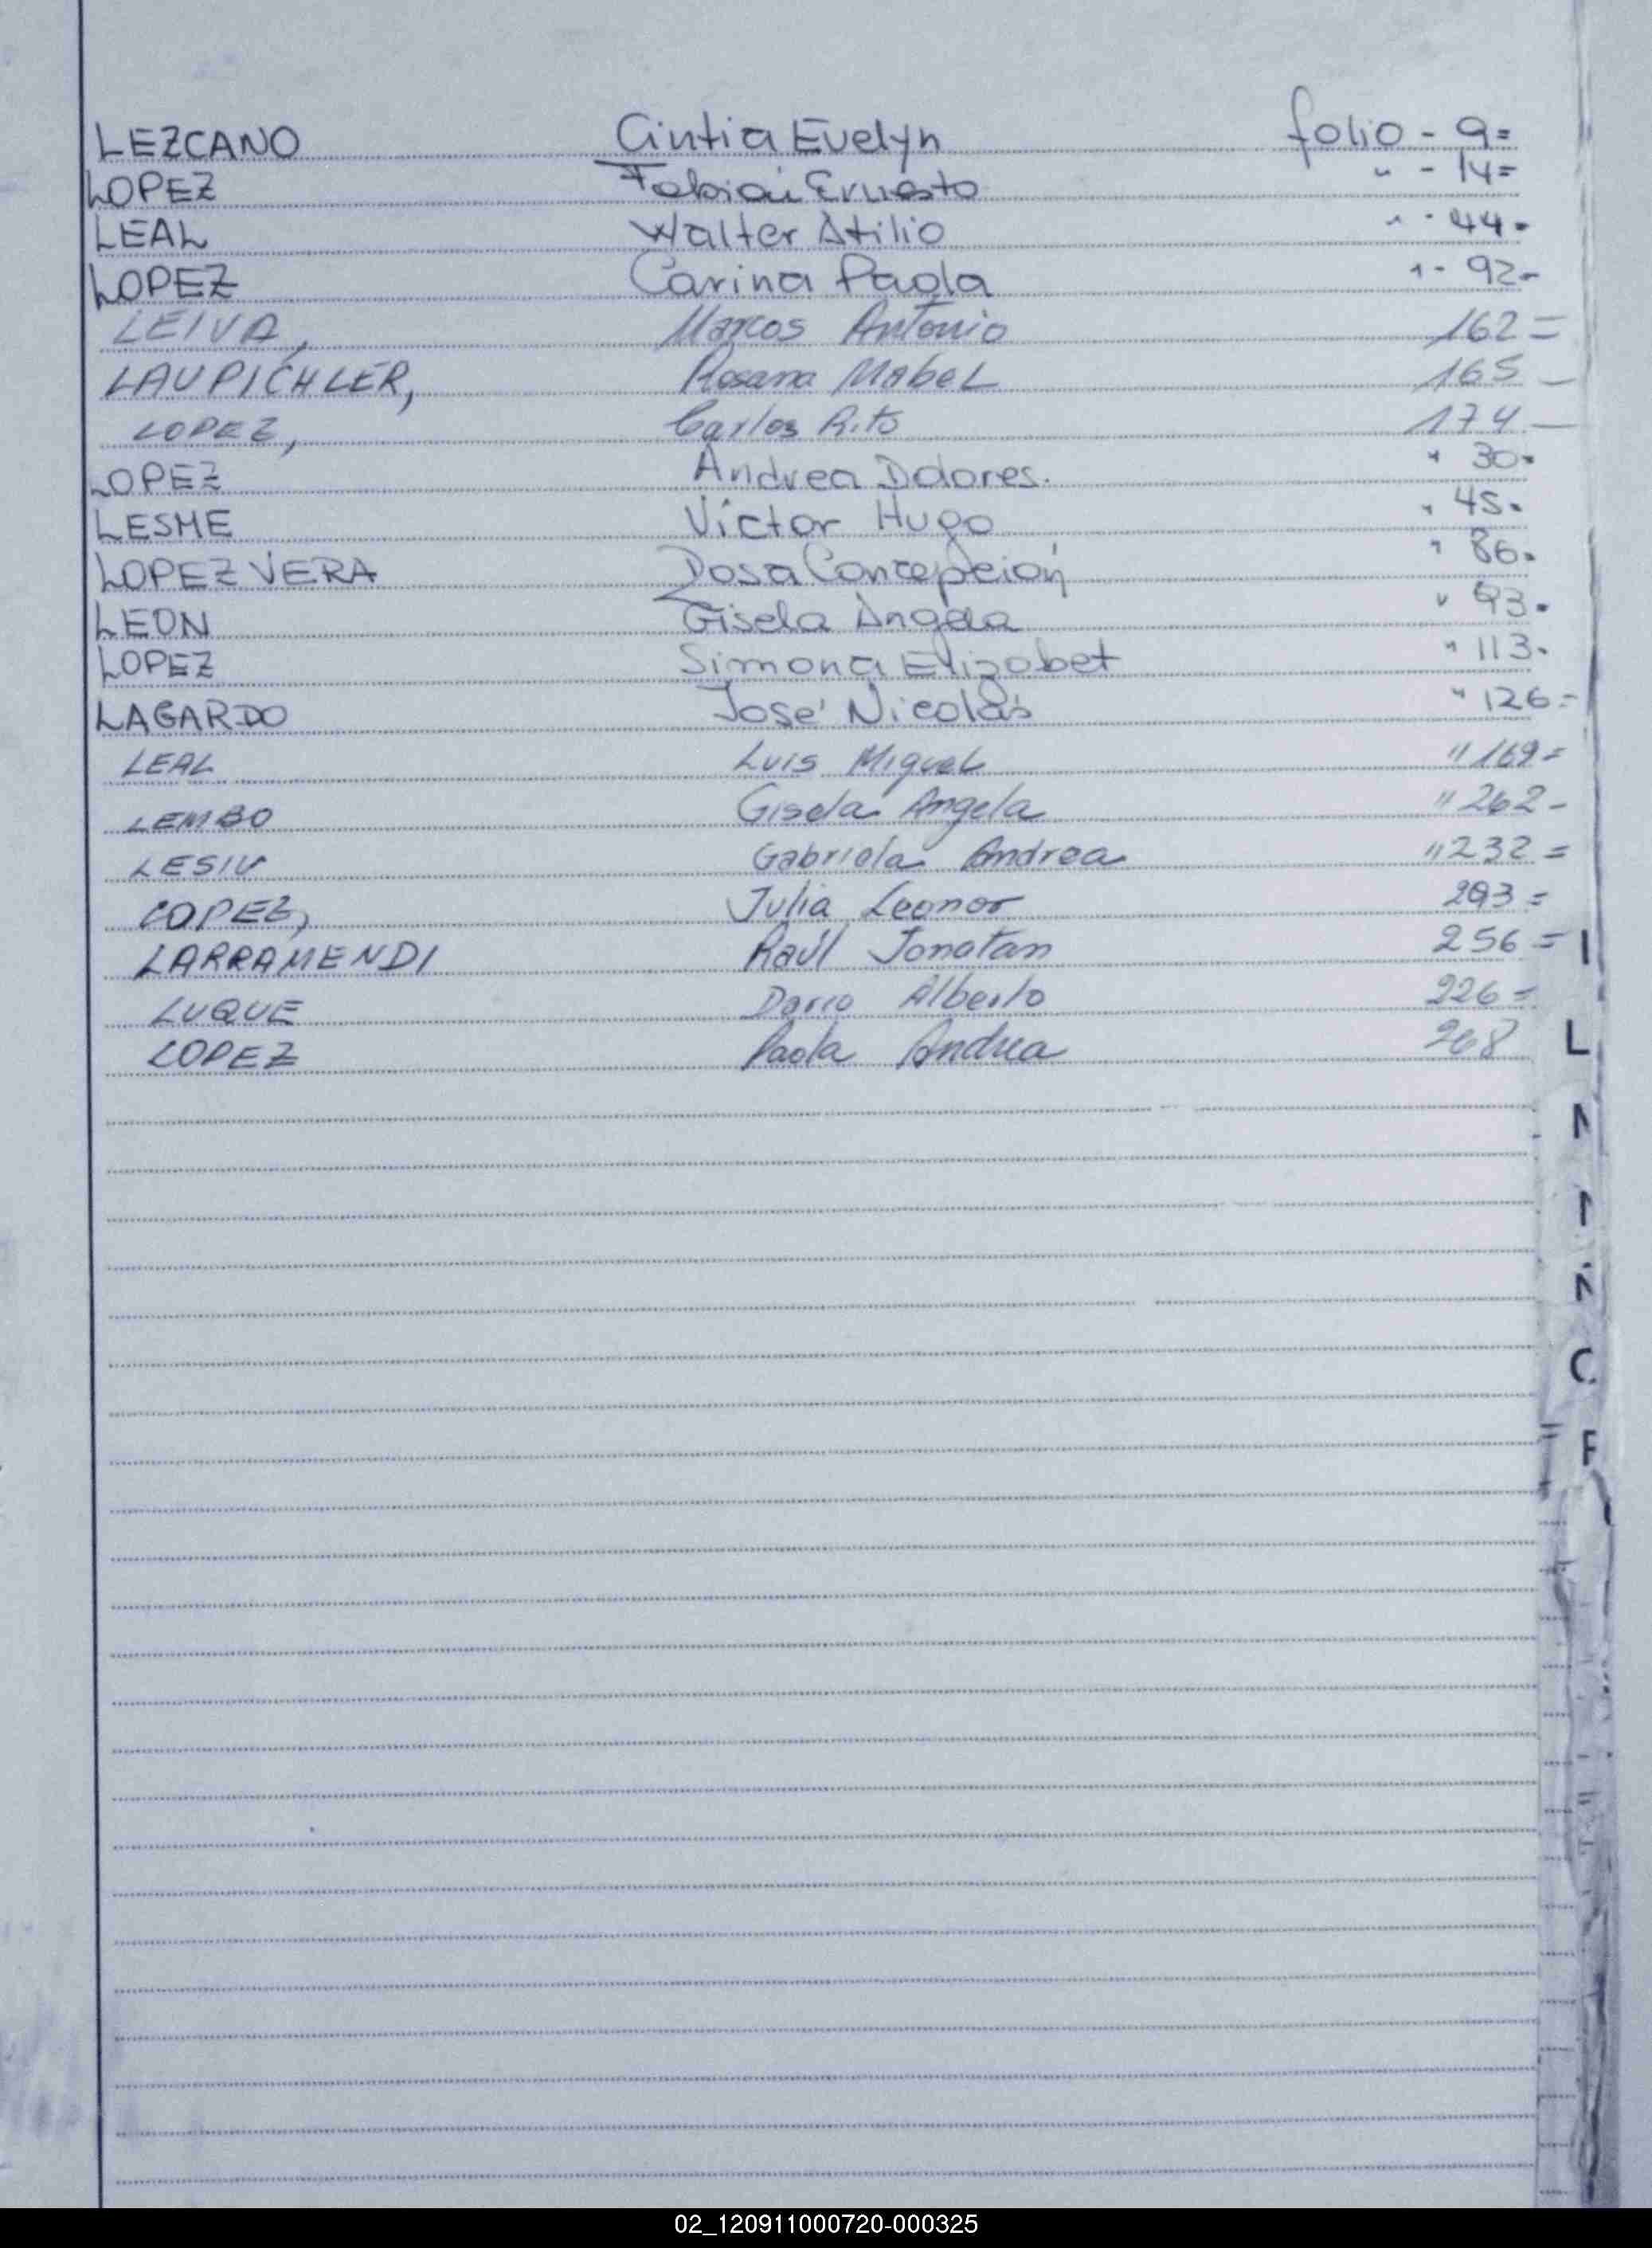 LEZCANO Cintia Evelyn folio - 9=
LOPEZ Fabián Ernesto " - 14=
LEAL Walter Atilio " - 44-
LOPEZ Carina Paola " - 92-
LEIVA, Marcos Antonio 162=
LAUPICHLER, Rosana MabeL 165-
LOPEZ, Carlos Rito 174-
LOPEZ Andrea Dolores. " 30-
LESME Victor Hugo " 45-
LOPEZ VERA Rosa Concepción " 86-
LEON Gisela Angela " 93-
LOPEZ Simona Elizabet " 113-
LAGARDO José Nicolás " 126=
LEAL Luis MigueL " 169=
LEMBO Gisela Angela " 262-
LESIU Gabriela Andrea " 232=
LOPEZ, Julia Leonor 293=
LARRAMENDI Raúl Jonatan 256=
LUQUE Dario Alberto 226=
LOPEZ Paola Andrea 268
I
L
Ñ
02_120911000720-000325